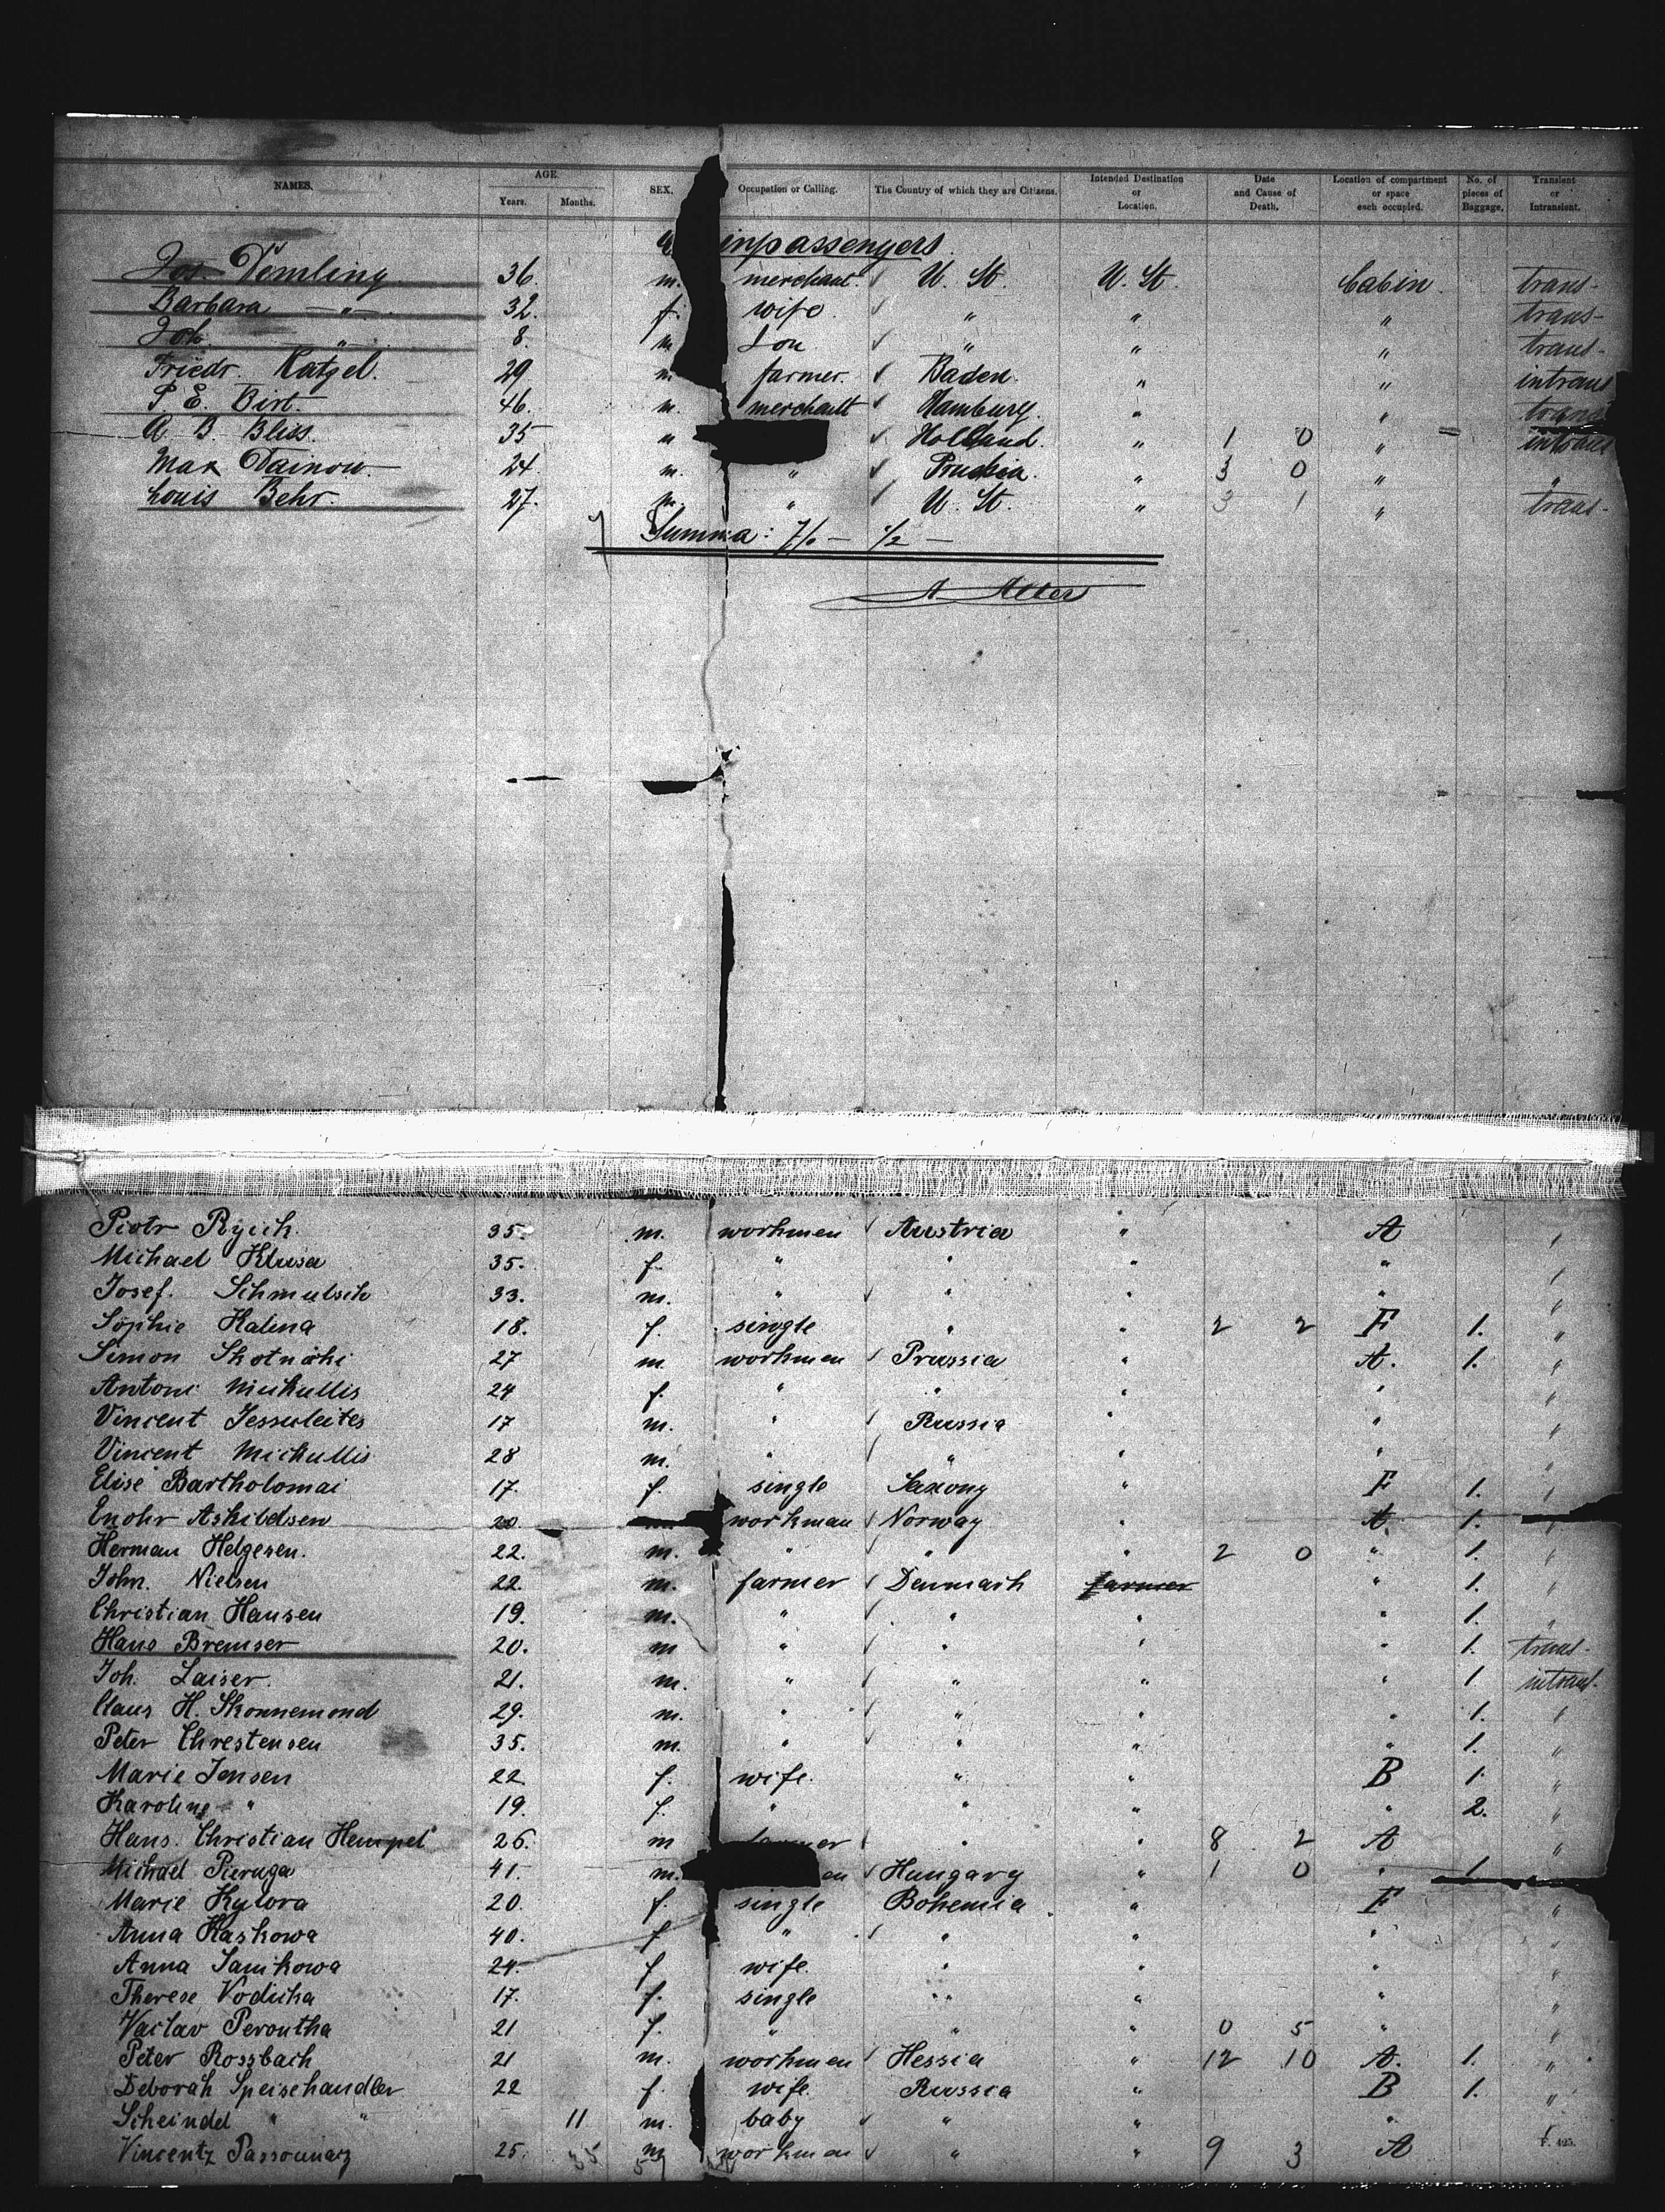 NAMES. AGE. Years. Months. SEX. Occupation or Calling. The Country of which they are Citizens. Intended Destination or Location. Date and Cause of Death. Location of compartment or space each occupied. No. of pieces of Baggage. Transient or Intransient.
inpassengers
Jos. Demling 36. m. merchant. ✓ U. St. U. St. Cabin. trans-
Barbara —"— 32. f. wife. ✓ " " " trans-
Joh. " 8. m son ✓ " " " trans-
Friedr. Katzel. 29 m. farmer. ✓ Baden. " " intrans
P. E. Birt. 46. m. merchant ✓ Hamburg. " "
A. B. Bliss. 35 ✓ Holland. " 1 0 " intrans
Max Dainow 24. m. " ✓ Prussia. " 3 0 " "
Louis Behr. 27. m. " ✓ U. St. " 3 1 " trans-
Summa: 7/0 — 1/2 —
A Alter
Piotr Rycih. 35. m. workmen ✓ Austria " A "
Michael Klusa 35. f. " " " " "
Josef. Schmulsch 33. m. " ✓ " " " "
Sophie Kalina 18. f. single " " 2 2 F 1. "
Simon Skotnicki 27 m. workmen ✓ Prussia " A. 1. "
Antoni Mickullis 24 f. " " " " "
Vincent Jessuleites 17 m. " ✓ Russia " " "
Vincent Mickullis 28 m. " ✓ " " " "
Elise Bartholomai 17. f. single Saxony " F 1. "
Enohr Askildsen 20. workman ✓ Norway " A. 1. "
Herman Helgesen. 22. m. " ✓ " " 2 0 " 1. "
John. Nielsen 22. m. farmer ✓ Denmark farmer " 1. "
Christian Hansen 19. m. " ✓ " " " 1. "
Hans Bremser 20. m " ✓ " " " 1. trans-
Joh. Laiser. 21. m. " ✓ " " " 1 intrans.
Claus H. Skonnemond 29. m. " ✓ " " " 1. "
Peter Chrestensen 35. m. " ✓ " " " 1. "
Marie Jensen 22. f. wife. " " B 1. "
Karoline " 19. f. " " " " 2. "
Hans. Christian Hempel 26. m farmer ✓ " " 8 2 A "
Michael Pieruga 41. m. en ✓ Hungary " 1 0 " 1.
Marie Kylova 20. f. single Bohemia " F "
Anna Haskowa 40. f " ✓ " " " "
Anna Janikowa 24. f wife. " " " "
Therese Vodicha 17. f. single " " " "
Vaclav Peroutha 21 f. " " " 0 5 " "
Peter Rossbach 21 m. workmen ✓ Hessia " 12 10 A. 1. "
Deborah Speisehandler 22 f. wife. Russia " B 1. "
Scheindel " " 11 m. baby ✓ " " " "
Vincentz Passounarz 25. m workmen ✓ " " 9 3 A
35 59
F. 425.